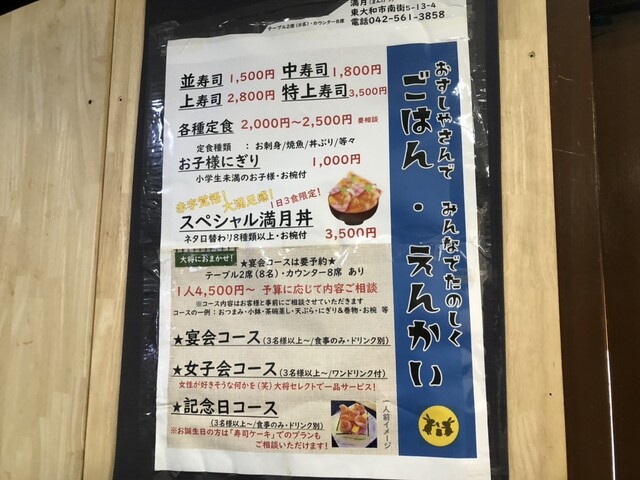 満月
東大和市南街5-13-4
テーブル2席(8名)・カウンター8席
電話042-561-3858
おすしやさんで みんなでたのしく
ごはん・えんかい
並寿司 1,500円 中寿司 1,800円
上寿司 2,800円 特上寿司 3,500円
各種定食 2,000円〜2,500円 要相談
定食種類 : お刺身/焼魚/丼ぶり/等々
お子様にぎり 1,000円
小学生未満のお子様・お椀付
赤字覚悟! 大満足感! 1日3食限定!
スペシャル満月丼
ネタ日替わり8種類以上・お椀付 3,500円
大将におまかせ! ★宴会コースは要予約★
テーブル2席(8名)・カウンター8席 あり
1人4,500円〜 予算に応じて内容ご相談
※コース内容はお客様と事前にご相談させていただきます
コースの一例:おつまみ・小鉢・茶碗蒸し・天ぷら・にぎり&巻物・お椀 等
★宴会コース(3名様以上〜/食事のみ・ドリンク別)
★女子会コース(3名様以上〜/ワンドリンク付)
女性が好きそうな何かを(笑)大将セレクトで一品サービス!
★記念日コース
(3名様以上〜/食事のみ・ドリンク別)
※お誕生日の方は「寿司ケーキ」でのプランも
ご相談いただけます!
一人前イメージ